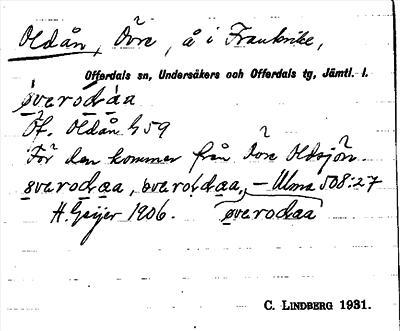 Oldån, Övre, å i Frankrike,
Offerdals sn, Undersåkers och Offerdals tg, Jämtl. l.
øverodaa
Öf. Oldån h 59
För den kommer från Övre Oldsjön.
øverodaa, øverodaa, – Ulma 508:27
H. Geijer 1906. øverodaa
C. LINDBERG 1931.